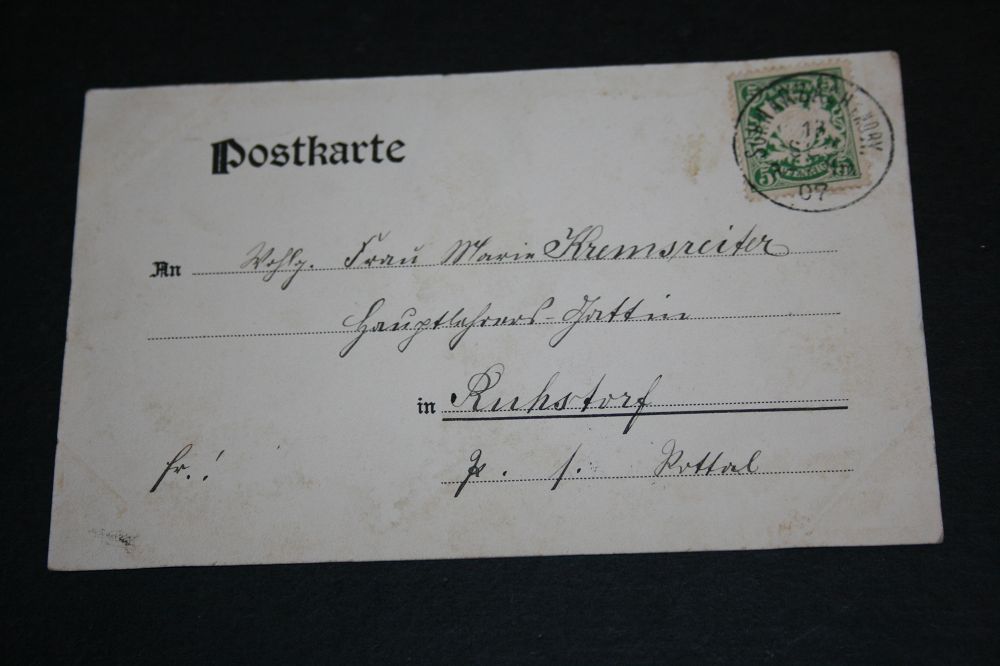 5
13
07
Postkarte
An Wohlg. Frau Marie Kremsreiter
Hauptlehrers-Gattin
in Ruhstorf
fr.! P. s. Rottal